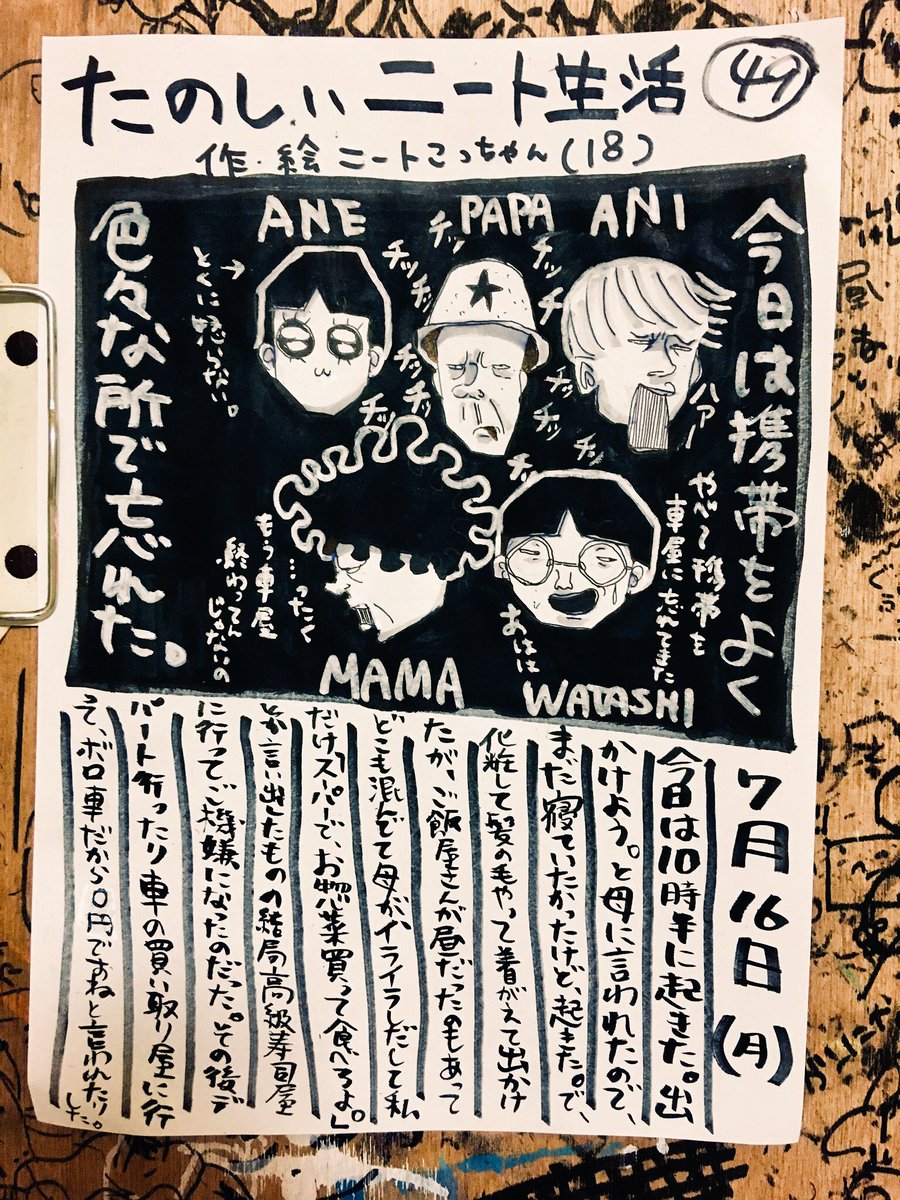 たのしいニート生活 49
作・絵 ニートこっちゃん(18)
今日は携帯をよく
色々な所で忘れた。
ANE
PAPA
ANI
チッ
チッ
チッ
チッ
チッ
チッ
チッ
チッ
チッ
チッ
チッ
チッ
ハァー
→
とくに喋らない。
やべぇ携帯を
車屋に忘れてきた
あはは
…ったく
もう車屋
終わってん
じゃないの
MAMA
WATASHI
7月16日(月)
今日は10時半に起きた。出
かけよう。と母に言われたので、
まだ寝ていたかったけど、起きた。で、
化粧して髪の毛やって着がえて出かけ
たが、ご飯屋さんが昼だったのもあって
どこも混んでて母がイライラしだして「私
だけスーパーで、お惣菜買って食べろよ。」
とか言い出したものの結局高級寿司屋
に行ってご機嫌になったのだった。その後デ
パート行ったり車の買い取り屋に行
って、ボロ車だから0円ですねと言われたり
した。